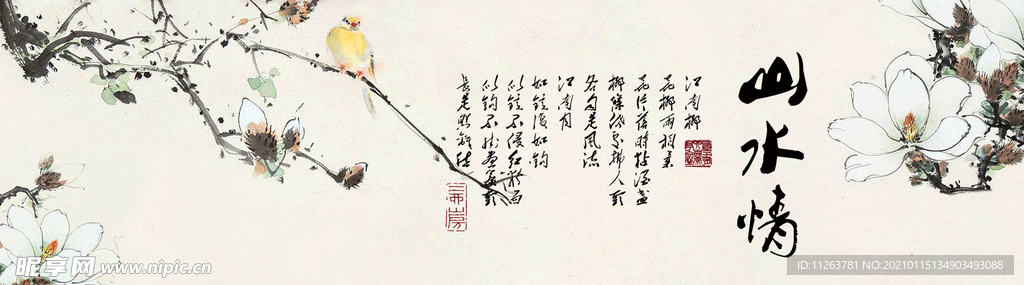 山水情
江南柳
花柳兩相柔
花片落時粘酒盞
柳條低處拂人頭
各自是風流
江南月
如鏡復如鉤
似鏡不侵紅粉面
似鉤不挂畫簾頭
長是照離愁
昵享网 www.nipic.cn
ID:11263781 NO:20210115134903493088